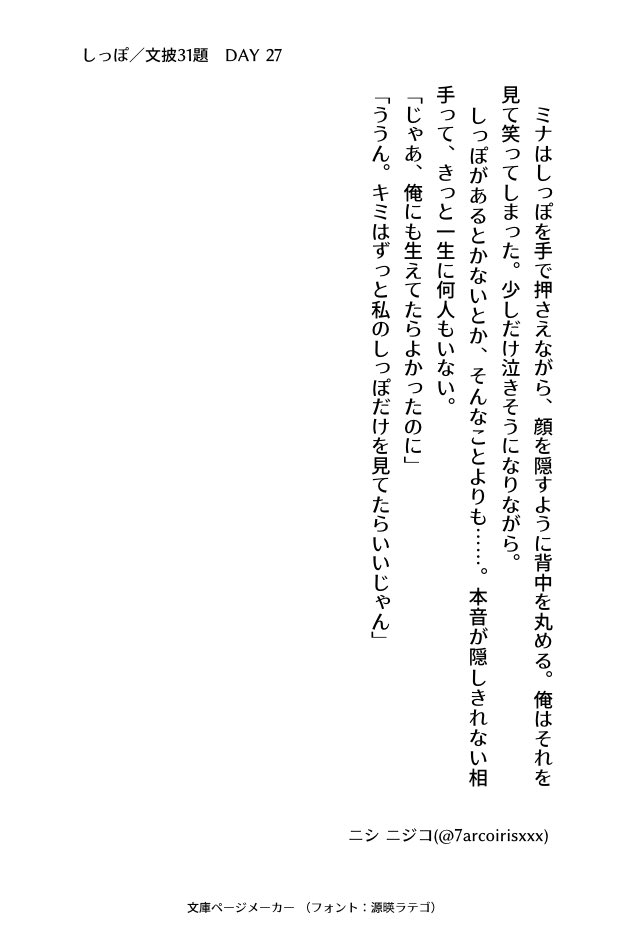 しっぽ／文披31題　DAY 27
　ミナはしっぽを手で押さえながら、顔を隠すように背中を丸める。俺はそれを
見て笑ってしまった。少しだけ泣きそうになりながら。
　しっぽがあるとかないとか、そんなことよりも……。本音が隠しきれない相
手って、きっと一生に何人もいない。
「じゃあ、俺にも生えてたらよかったのに」
「ううん。キミはずっと私のしっぽだけを見てたらいいじゃん」
ニシ ニジコ(@7arcoirisxxx)
文庫ページメーカー （フォント：源暎ラテゴ）